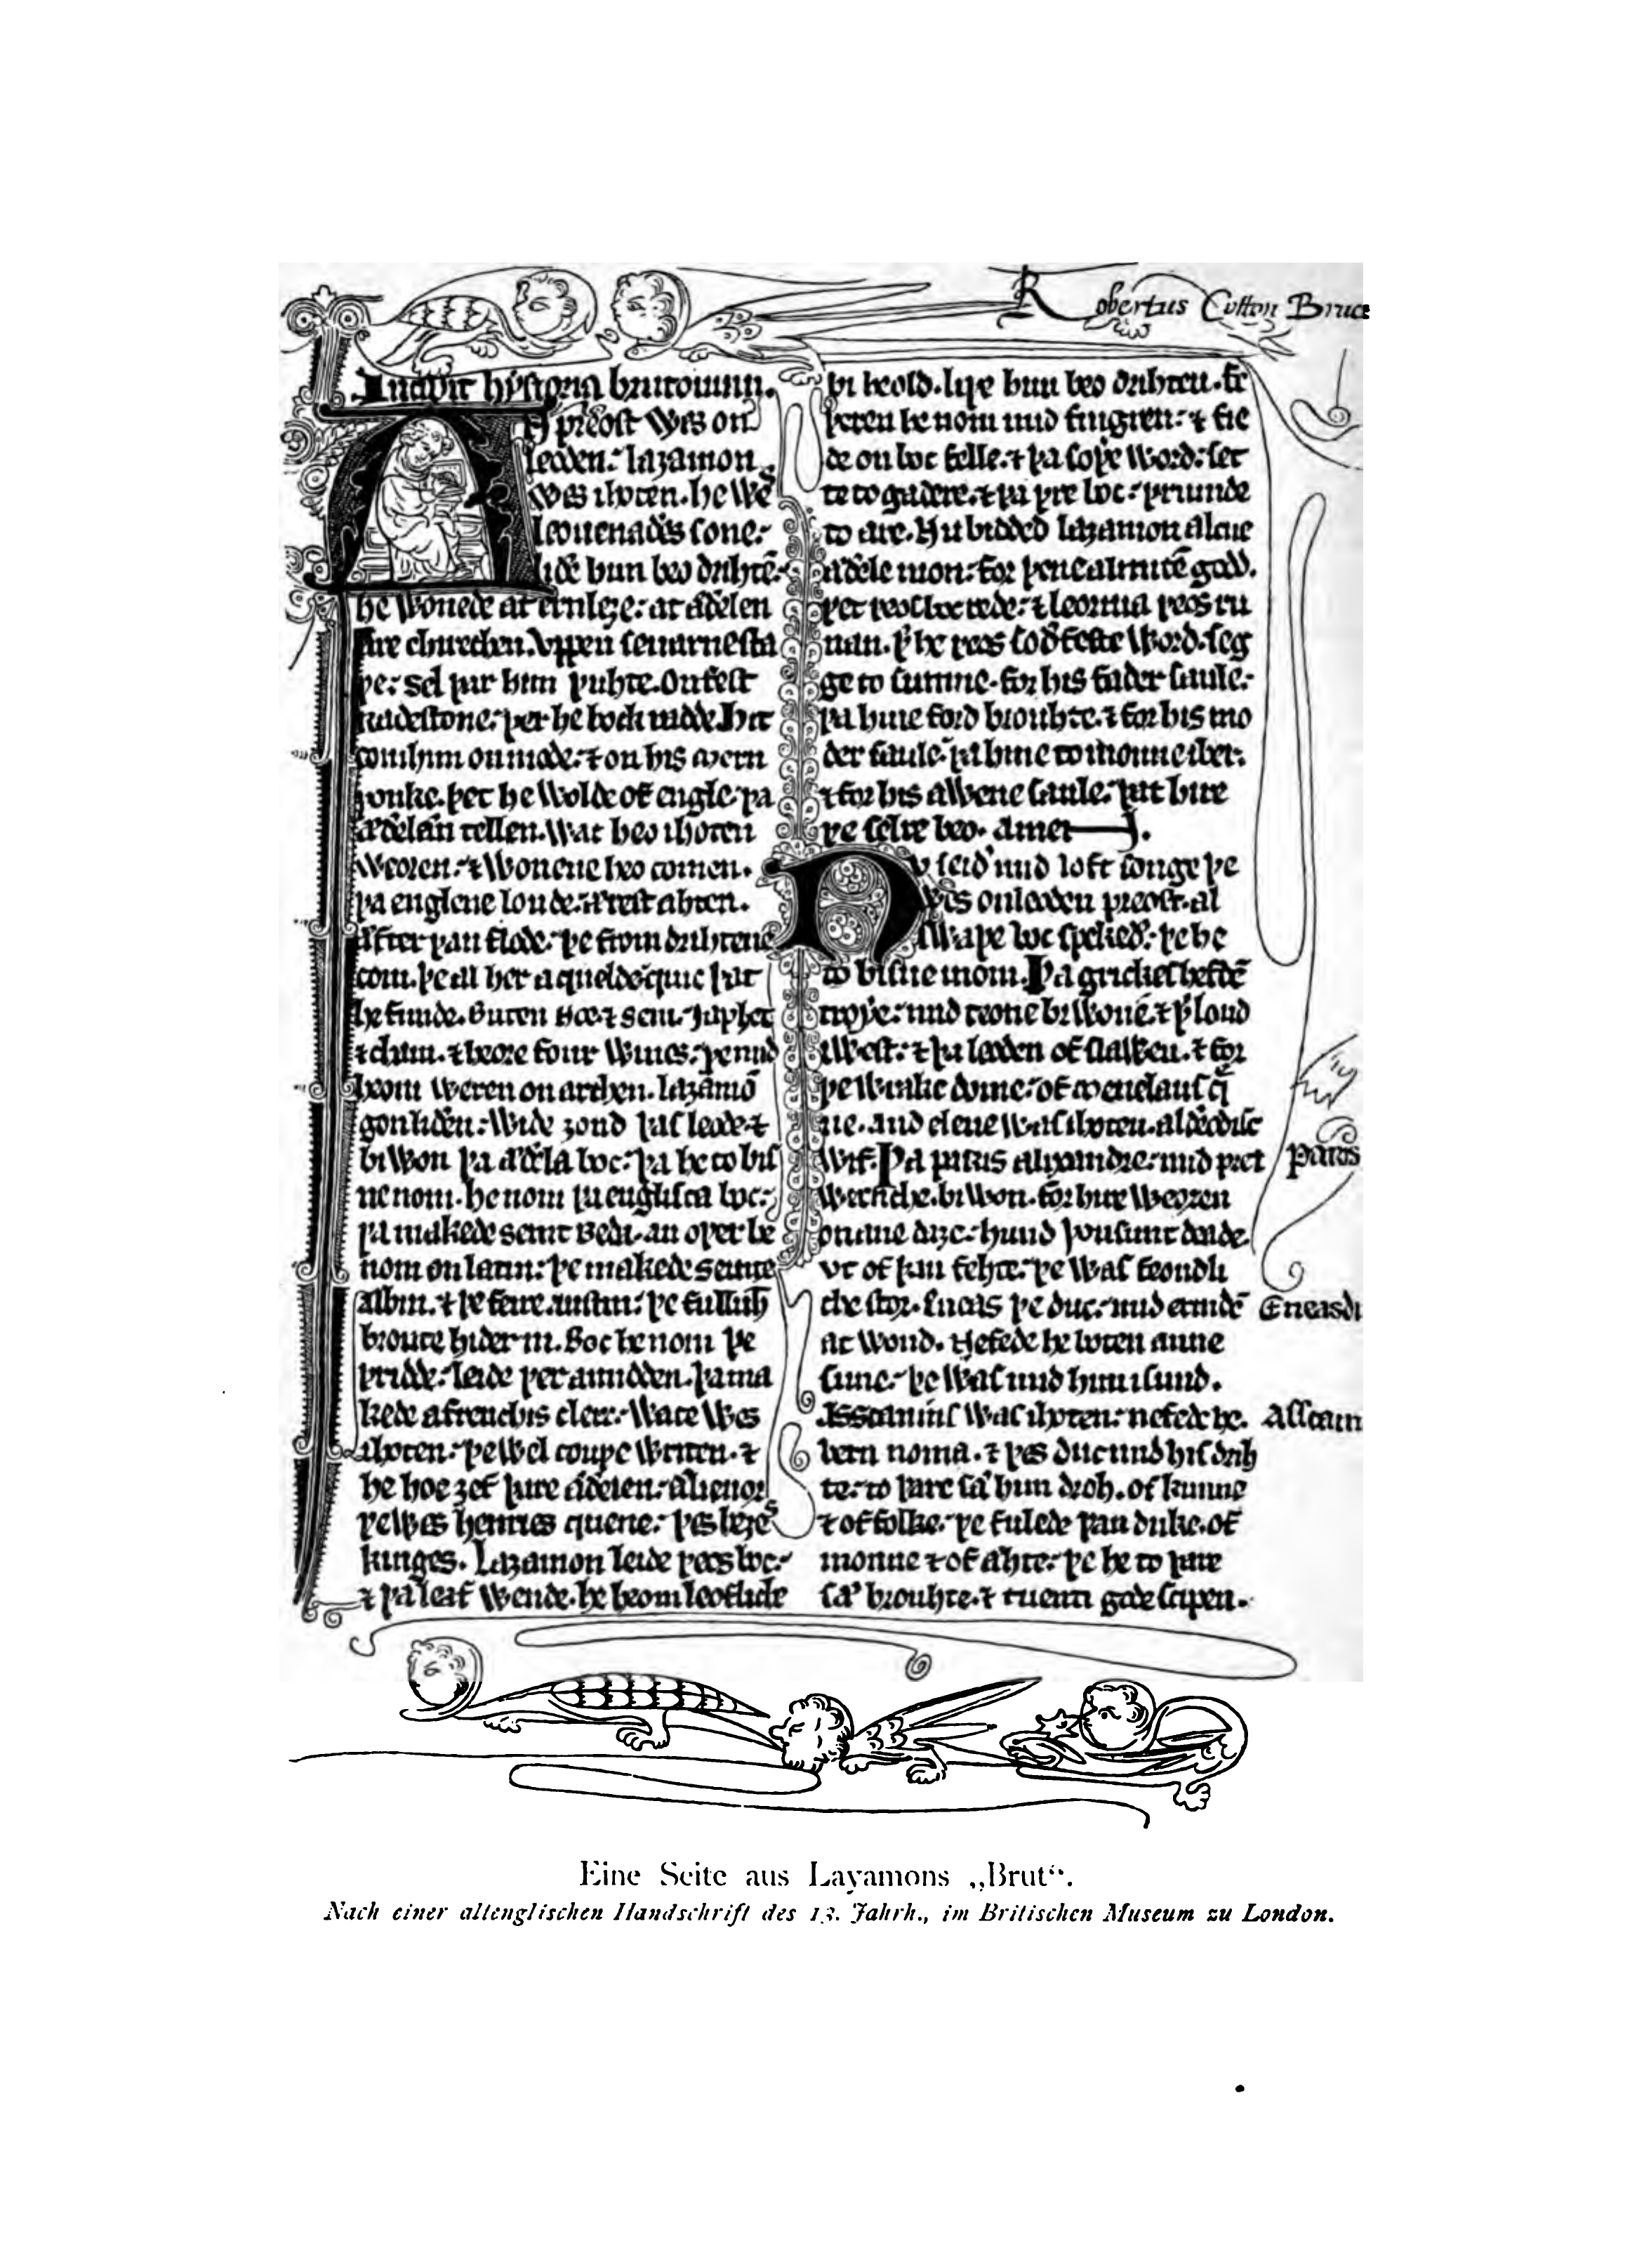 Robertus Cotton Bruce
Incipit hystoria brutonum.
A preost wes on
leoden. laȝamon
wes ihoten. he wes
leouenaðes sone.
liðe him beo drihtē.
he wonede at ernleȝe. at æðelen
are chirechen. vppen seuarne sta
þe. sel þar him þuhte. on fest
radestone. þer he bock radde. hit
com him on mode. ⁊ on his mern
þonke. þet he wolde of engle. þa
æðelæn tellen. wat heo ihoten
weoren. ⁊ wonene heo comen.
þa englene londe. ærest ahten.
æfter þan flode. þe from drihtene
com. þe al her a quelde. quic þat
he funde. buten noe. ⁊ sem. iaphet
⁊ cham. ⁊ heore four wiues. þe mid
heom weren on archen. laȝamō
gon liðen. wide ȝond þas leode. ⁊
biwon þa æðela boc. þa he to bis
ne nom. he nom þa englisca boc.
þa makede seint beda. an oþer he
nom on latin. þe makede seinte
albin. ⁊ þe feire austin. þe fulluht
broute hider in. boc he nom þe
þridde. leide þer amidden. þa ma
kede a frenchis clerc. wace wes
ihoten. þe wel couþe writen. ⁊
he hoe ȝef þare æðelen. ælienor
þe wes henries quene. þes heȝes
kinges. laȝamon leide þeos boc.
⁊ þa leaf wende. he heom leofliche
bi heold. liþe him beo drihten. fe
þeren he nom mid fingren. ⁊ fie
de on boc felle. ⁊ þa soþe word. set
te to gadere. ⁊ þa þre boc. þrumde
to are. Nu biddeð laȝamon alcne
æðele mon. for þene almitē godd.
þet þeos boc rede. ⁊ leornia þeos ru
nan. þ he þeos soðfeste word. seg
ge to sumne. for his fader saule.
þa hine forð brouhte. ⁊ for his mo
der saule. þa hine to monne iber.
⁊ for his awene saule. þat hire
þe selre beo. amen.
Nu seið mid loft songe þe
wes on leoden preost. al
swa þe boc spekeð. þe he
to bisne inom. Þa grickes hefdē
troye. mid teone biwonē. ⁊ þ lond
iwest. ⁊ þa leoden of slawen. ⁊ for
þe wrake dome. of menelaus q̄
ne. and elene was ihoten. alðeodisc
wif. Þa paris alixandre. mid pret
wrenche. biwon. for hire weoren
on ane dæȝe. hund þousunt deade.
vt of þan fehte. þe was feondli
che stor. eneas þe duc. mid ermðē
at wond. nefede he boten anne
sune. þe was mid him isund.
Asscanius was ihoten. nefede he.
bern noma. ⁊ þes duc mid his drih
te. to þare sæ him droh. of kunne
⁊ of folke. þe fulede þan duke. of
monne ⁊ of ahte. þe he to þare
sæ brouhte. ⁊ tuenti gode scipen.
Paris
Eneas
Eine Seite aus Layamons „Brut“.
Nach einer altenglischen Handschrift des 13. Jahrh., im Britischen Museum zu London.